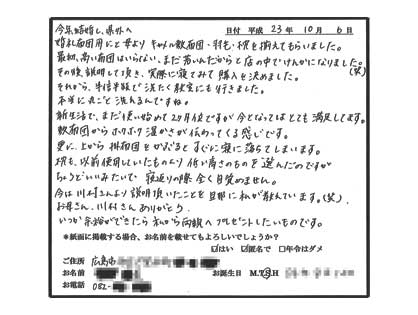 今年結婚し、県外へ
日付 平成 23 年 10 月 6 日
婚礼布団用にと母よりキャメル敷布団・羽毛・枕を揃えてもらいました。
最初、高い布団はいらない、まだ若いんだからと店の中でけんかになりました。(笑)
その後、説明して頂き、実際に寝てみて購入を決めました。
それから、半信半疑で洗たく教室にも行きました。
本当に丸ごと洗えるんですね。
新生活で、まだ使い始めて2ヶ月位ですが今となってはとても満足してます。
敷布団からホカホカ温かさが伝わってくる感じです。
更に、上から掛布団をかぶるとすぐに寝に落ちてしまいます。
枕も、以前使用していたものより低い高さのものを選んだのですが
ちょうどいいみたいで 寝返りの際全く目覚めません。
今は川村さんより説明頂いたことを旦那に私が教えています。(笑)
お母さん、川村さん ありがとう。
いつか余裕ができたら私から両親へプレゼントしたいものです。
*紙面に掲載する場合、お名前を載せてもよろしいでしょうか?
☑はい ☑匿名で □年令はダメ
ご住所 広島市
お名前
お誕生日 M.T.S.H
お電話 082-